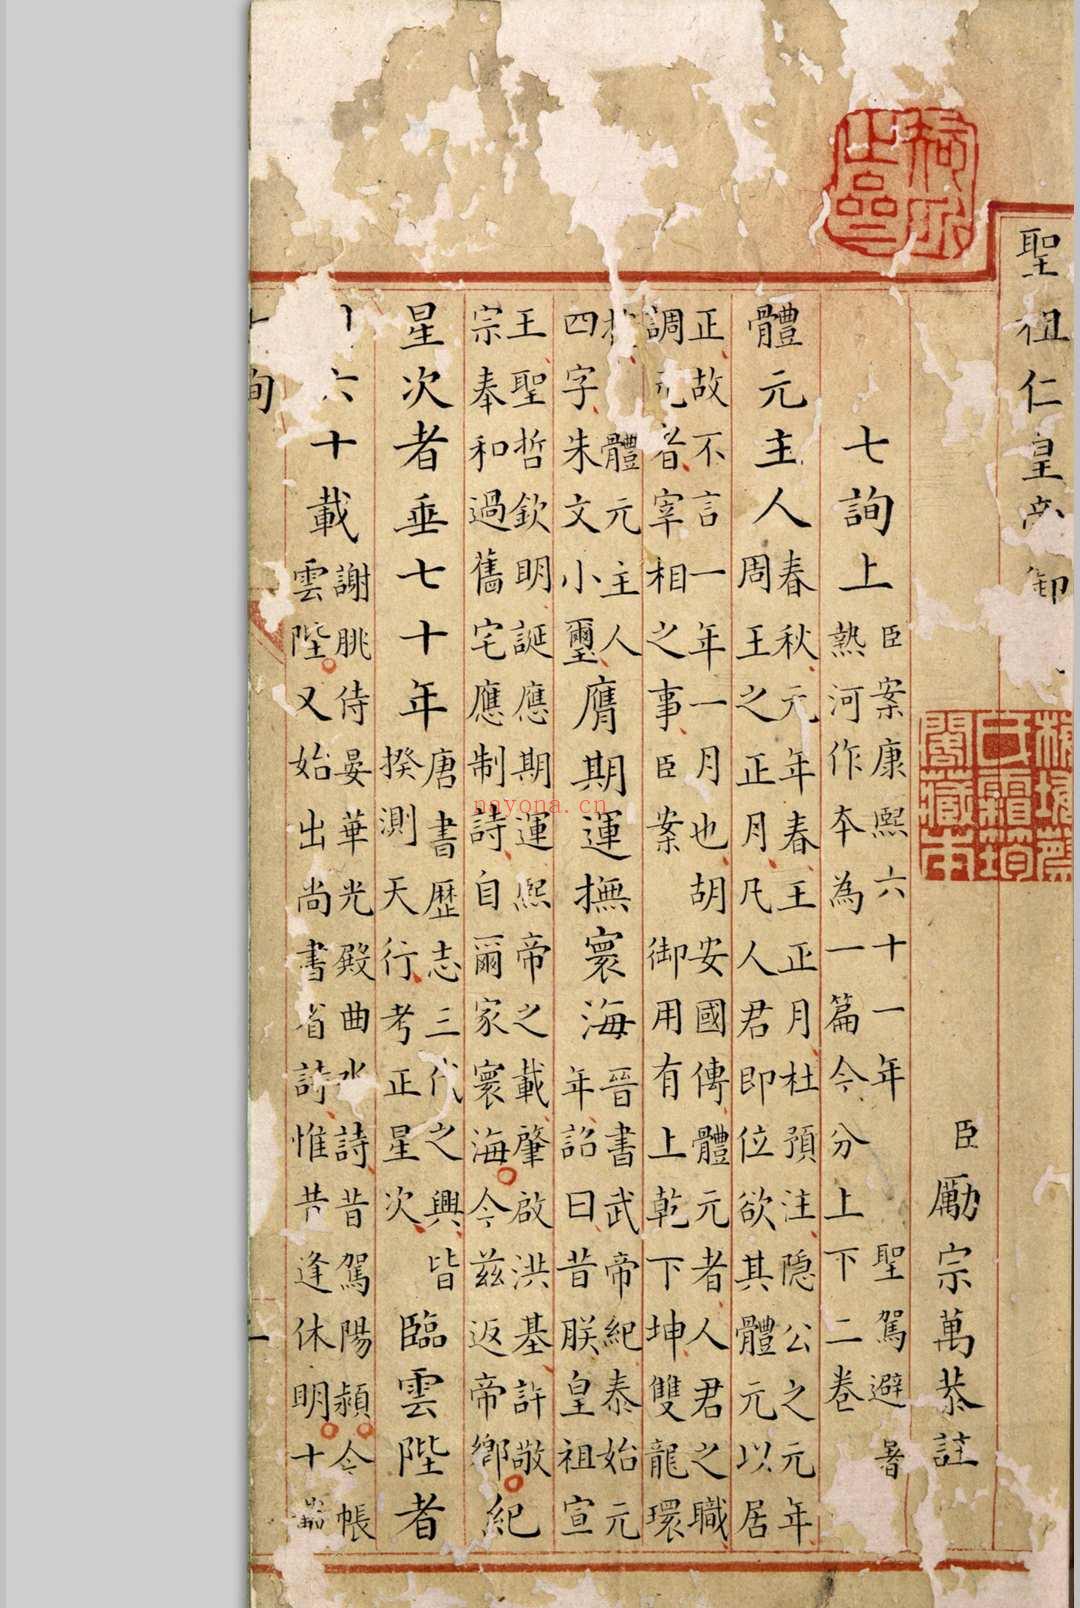 聖祖仁皇帝御
臣勵宗萬恭註
七詢上臣案康熙六十一年聖駕避暑
熱河作本為一篇今分上下二卷
體元主人春秋元年春王正月杜預注隱公之元年
周王之正月凡人君即位欲其體元以居
正故不言一年一月也胡安國傳體元者人君之職
調元者宰相之事臣案御用有上乾下坤雙龍環
體元主人
四字朱文小璽膺期運撫寰海晉書武帝紀泰始元
年詔曰昔朕皇祖宣
王聖哲欽明誕應期運熙帝之載肇啟洪基許敬
宗奉和過舊宅應制詩自爾家寰海今茲返帝鄉紀
星次者垂七十年唐書歷志三代之興皆
揆測天行考正星次臨雲陛者
六十載謝朓侍晏華光殿曲水詩昔駕陽潁今帳
雲陛又始出尚書省詩惟昔逢休明十
詢
nayona.cn